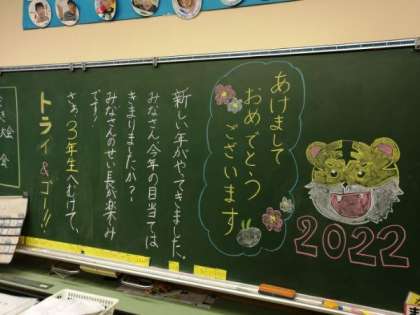 あけまして
おめでとう
ございます
2022
新しい年がやってきました。
みなさん今年の目当ては
きまりましたか？
みなさんのせい長が楽しみ
です！
さぁ３年生へむけて、
トライ&ゴー!!
大会
会